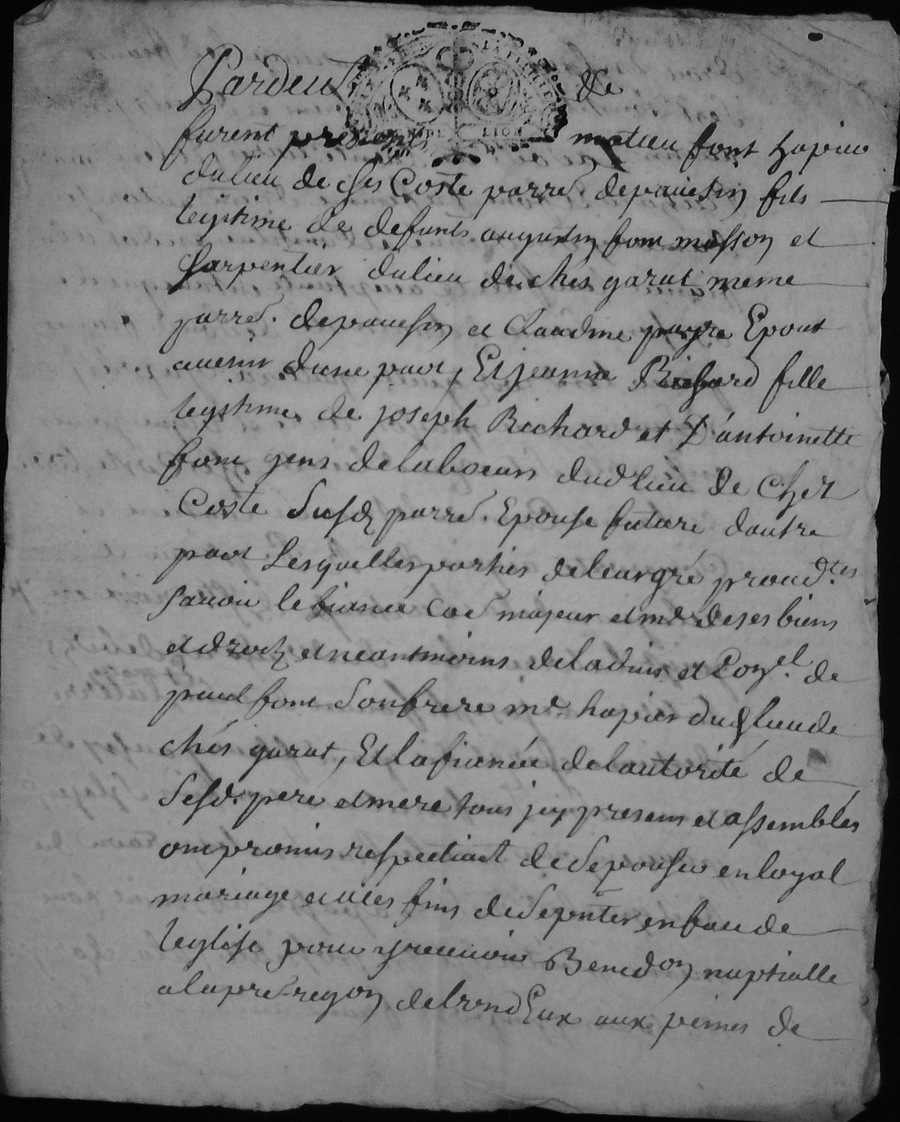 Pardeut de
furent presents matieu font hopier
dulieu de ches Coste parre. depaulsin fils
legitime de defunts augustin font masson et
Charpentier dulieu de ches garat meme
parre. depaulsin et claudine Epout
avenir dune part, Et jeanne Richard fille
legitime de joseph Richard et D'antoinette
font gens delaboeurs dud lieu de Chez
Coste Susd parre. Epouse future dautre
part Lesquelles parties deleurgré
Savoir lefiancé majeur et me. deses biens
et droits et neantmoins deladvis et de
paul font Sonfrere me. hopier dud lieu de
chés garat, Et lafiancée delautorité de
Sesd. pere et mere tous presens et assemblés
ont promis de Sepouser en loyal
mariage et acés fins de Sepnter enface de
leglise pour y recevoir Bened.on nuptialle
alapre. re.on delund Eux aux peines de